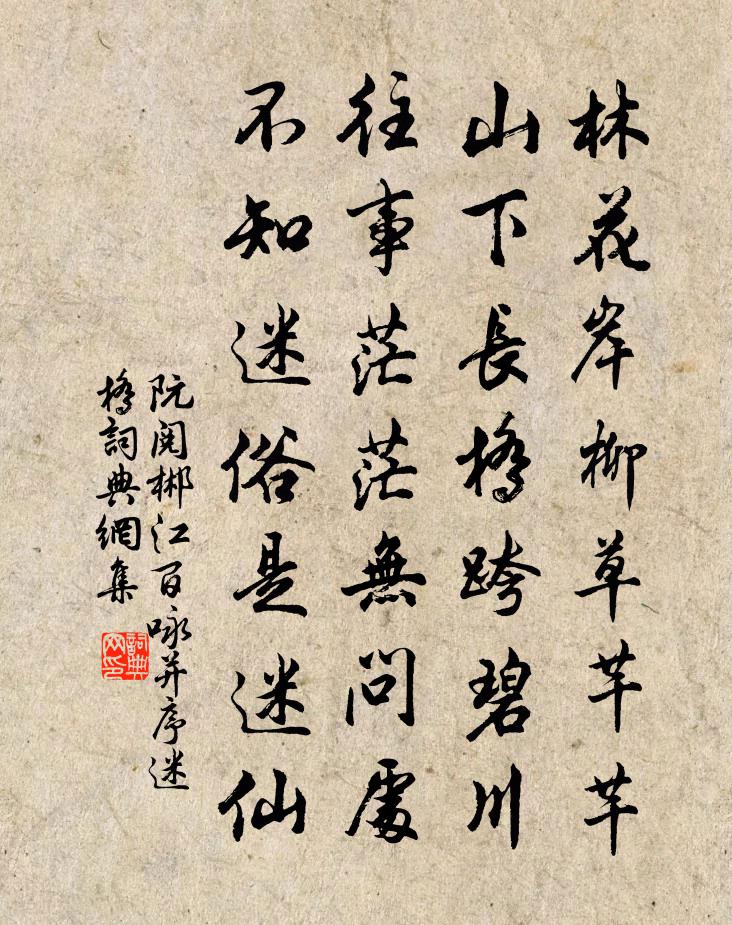 林花岸柳草芊芊
山下長橋跨碧川
往事茫茫無問處
不知迷俗是迷仙
阮閱郴江百咏并序迷
橋詞典網集
詞典網印